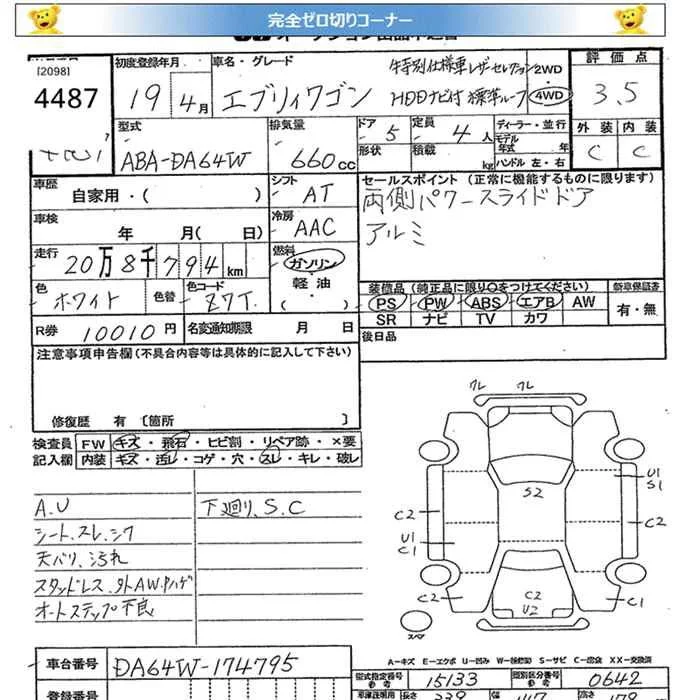 完全ゼロ切りコーナー
[2098]
4487
初度登録年月
19年4月
車名・グレード
エブリィワゴン
特別仕様車レザーセレクション
HDDナビ付 標準ルーフ
2WD
・
4WD
評価点
3.5
外装 内装
C C
型式
ABA-DA64W
排気量
660cc
ドア
5
形状
定員
4人
積載
kg
ディーラー・並行
モデル
年式 年
ハンドル 左・右
車歴
自家用・( )
シフト
AT
セールスポイント(正常に機能するものに限ります)
両側パワースライドドア
アルミ
車検
年 月( 日)
冷房
AAC
走行
20万8千794km
燃料
ガソリン
軽油
・( )
色
ホワイト
色替
色コード
Z7T
装備品(純正品に限り○をつけてください)
PS PW ABS エアB AW
SR ナビ TV カワ
新車保証書
有・無
R券 10010円
名変通知期限 月 日
後日品
注意事項申告欄(不具合内容等は具体的に記入して下さい)
修復歴 有 〔箇所 〕
検査員
記入欄
FW キズ・飛石・ヒビ割・リペア跡・×要
内装 キズ・汚レ・コゲ・穴・スレ・キレ・破レ
A.U
シート.スレ.シワ
天バリ、汚れ
スタッドレス、外AW.Pハゲ
オートステップ不良
下廻り、S.C
クレ クレ
S2
U1
S1
C2
C2
U1
C1
C2
C2
U2
C1
スペア
A-キズ E-エクボ U-凹み W-補修跡 S-サビ C-腐食 XX-交換済
車台番号
DA64W-174795
登録番号
型式指定番号
参考
15133
類別区分番号
参考
0642